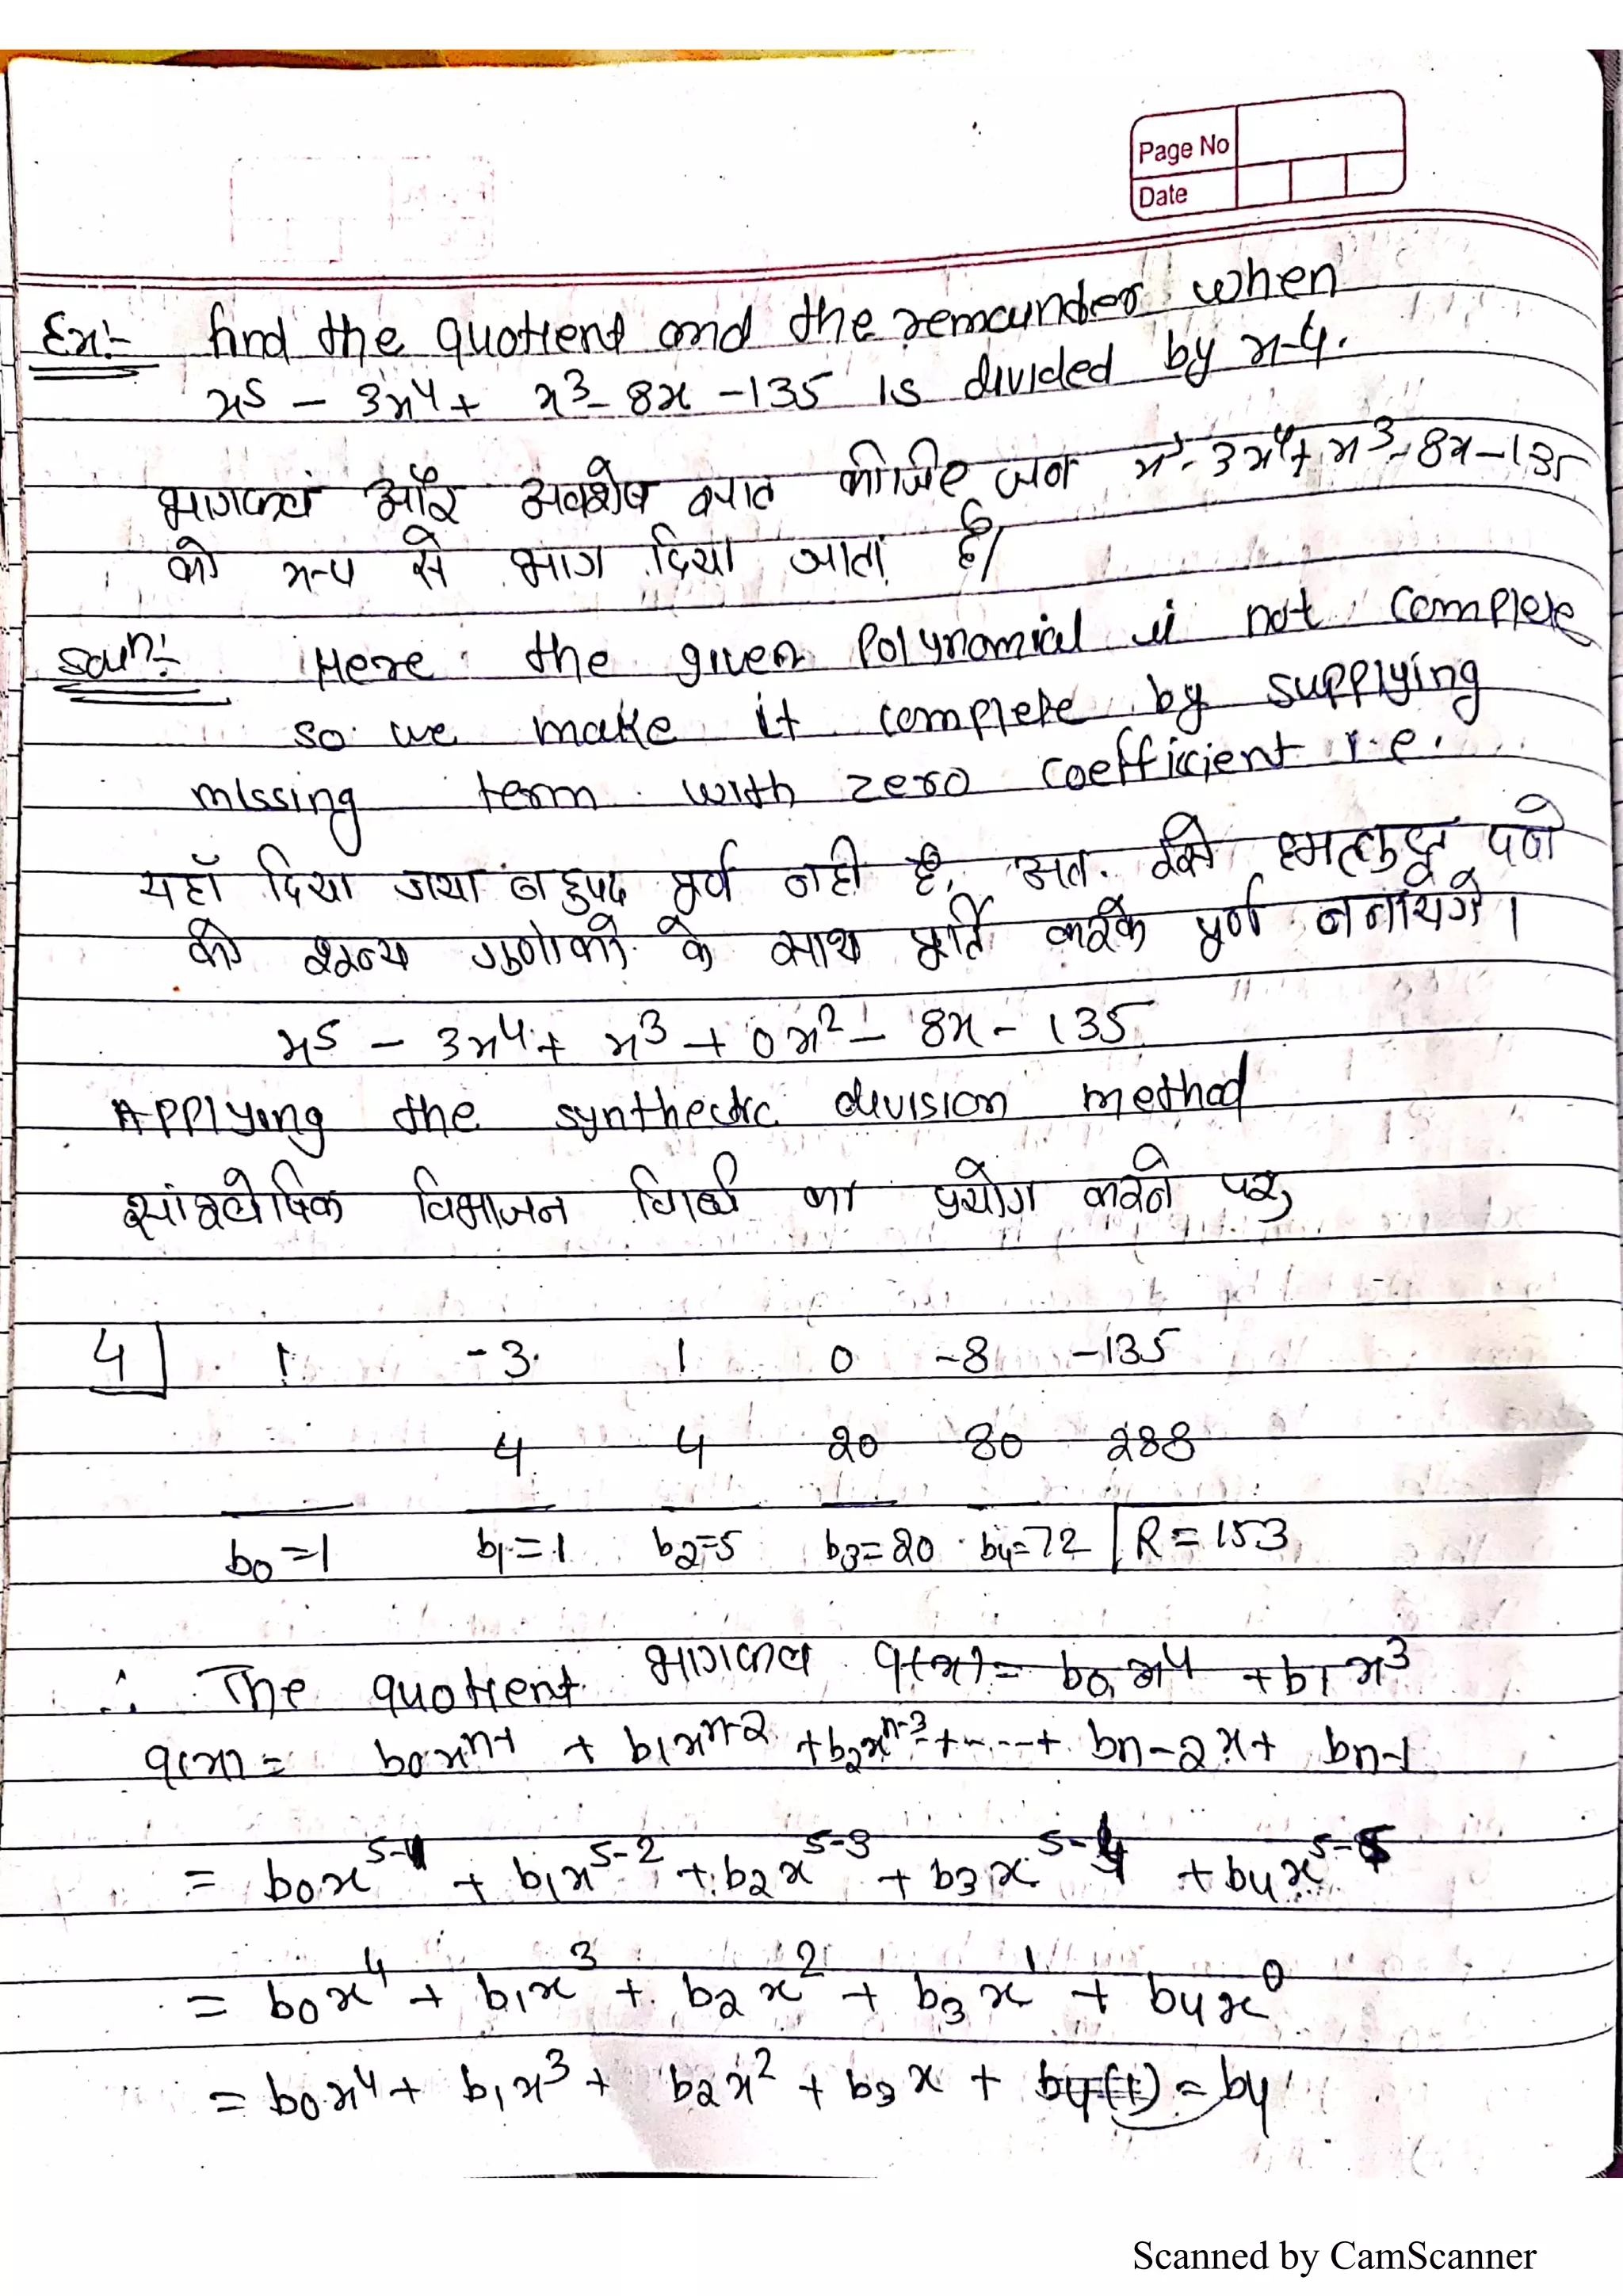 Page No
Date
Ex:- find the quotient and the remainder when
x⁵ - 3x⁴ + x³ - 8x - 135 is divided by x-4.
भागफल और अवशेष ज्ञात कीजिए जब x⁵ - 3x⁴ + x³ - 8x - 135
को x-4 से भाग दिया जाता है।
Soln:- Here the given Polynomial is not complete
so we make it complete by supplying
missing term with zero coefficient i.e.
यहाँ दिया गया बहुपद पूर्ण नही है, अत. इसे पदो
को शून्य गुणांको के साथ पूर्ति करके पूर्ण बनायेंगे।
x⁵ - 3x⁴ + x³ + 0x² - 8x - 135
Applying the synthectic division method
सांश्लेषिक विभाजन विधि का प्रयोग करने पर,
4 1 -3 1 0 -8 -135
4 4 20 80 288
b₀=1 b₁=1 b₂=5 b₃=20 b₄=72 R=153
∴ The quotient भागफल q(x) = b₀x⁴ + b₁x³
q(x) = b₀xⁿ⁻¹ + b₁xⁿ⁻² + b₂xⁿ⁻³ + ..... + bn-2x + bn-1
= b₀x⁵⁻¹ + b₁x⁵⁻² + b₂x⁵⁻³ + b₃x⁵⁻⁴ + b₄x⁵⁻⁵
= b₀x⁴ + b₁x³ + b₂x² + b₃x¹ + b₄x⁰
= b₀x⁴ + b₁x³ + b₂x² + b₃x + b₄(1) = b₄
Scanned by CamScanner